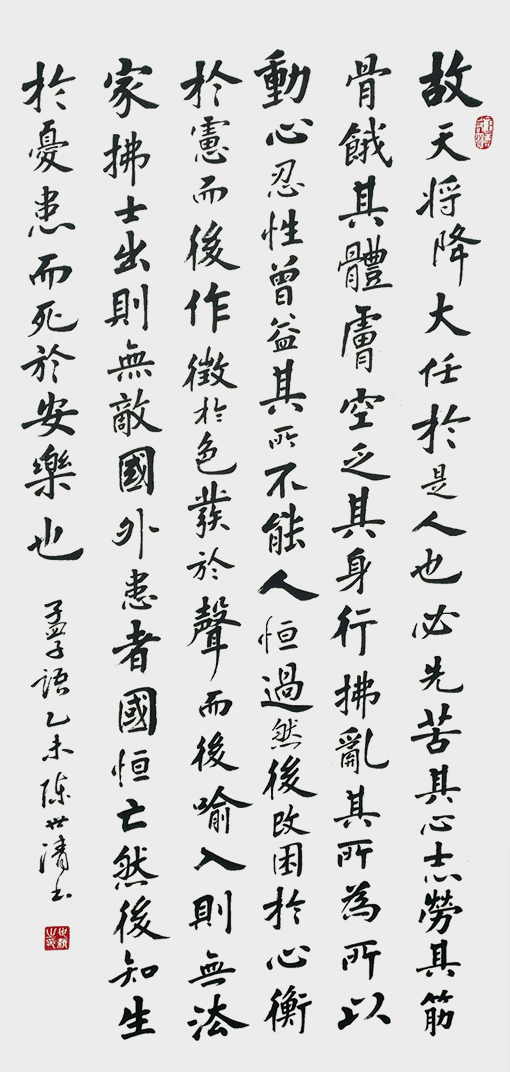 故天将降大任於是人也必先苦其心志勞其筋
骨餓其體膚空乏其身行拂亂其所為所以
動心忍性曾益其所不能人恒過然後改困於心衡
於慮而後作徵於色發於聲而後喻入則無法
家拂士出則無敵國外患者國恒亡然後知生
於憂患而死於安樂也
孟子語乙未陳世清书